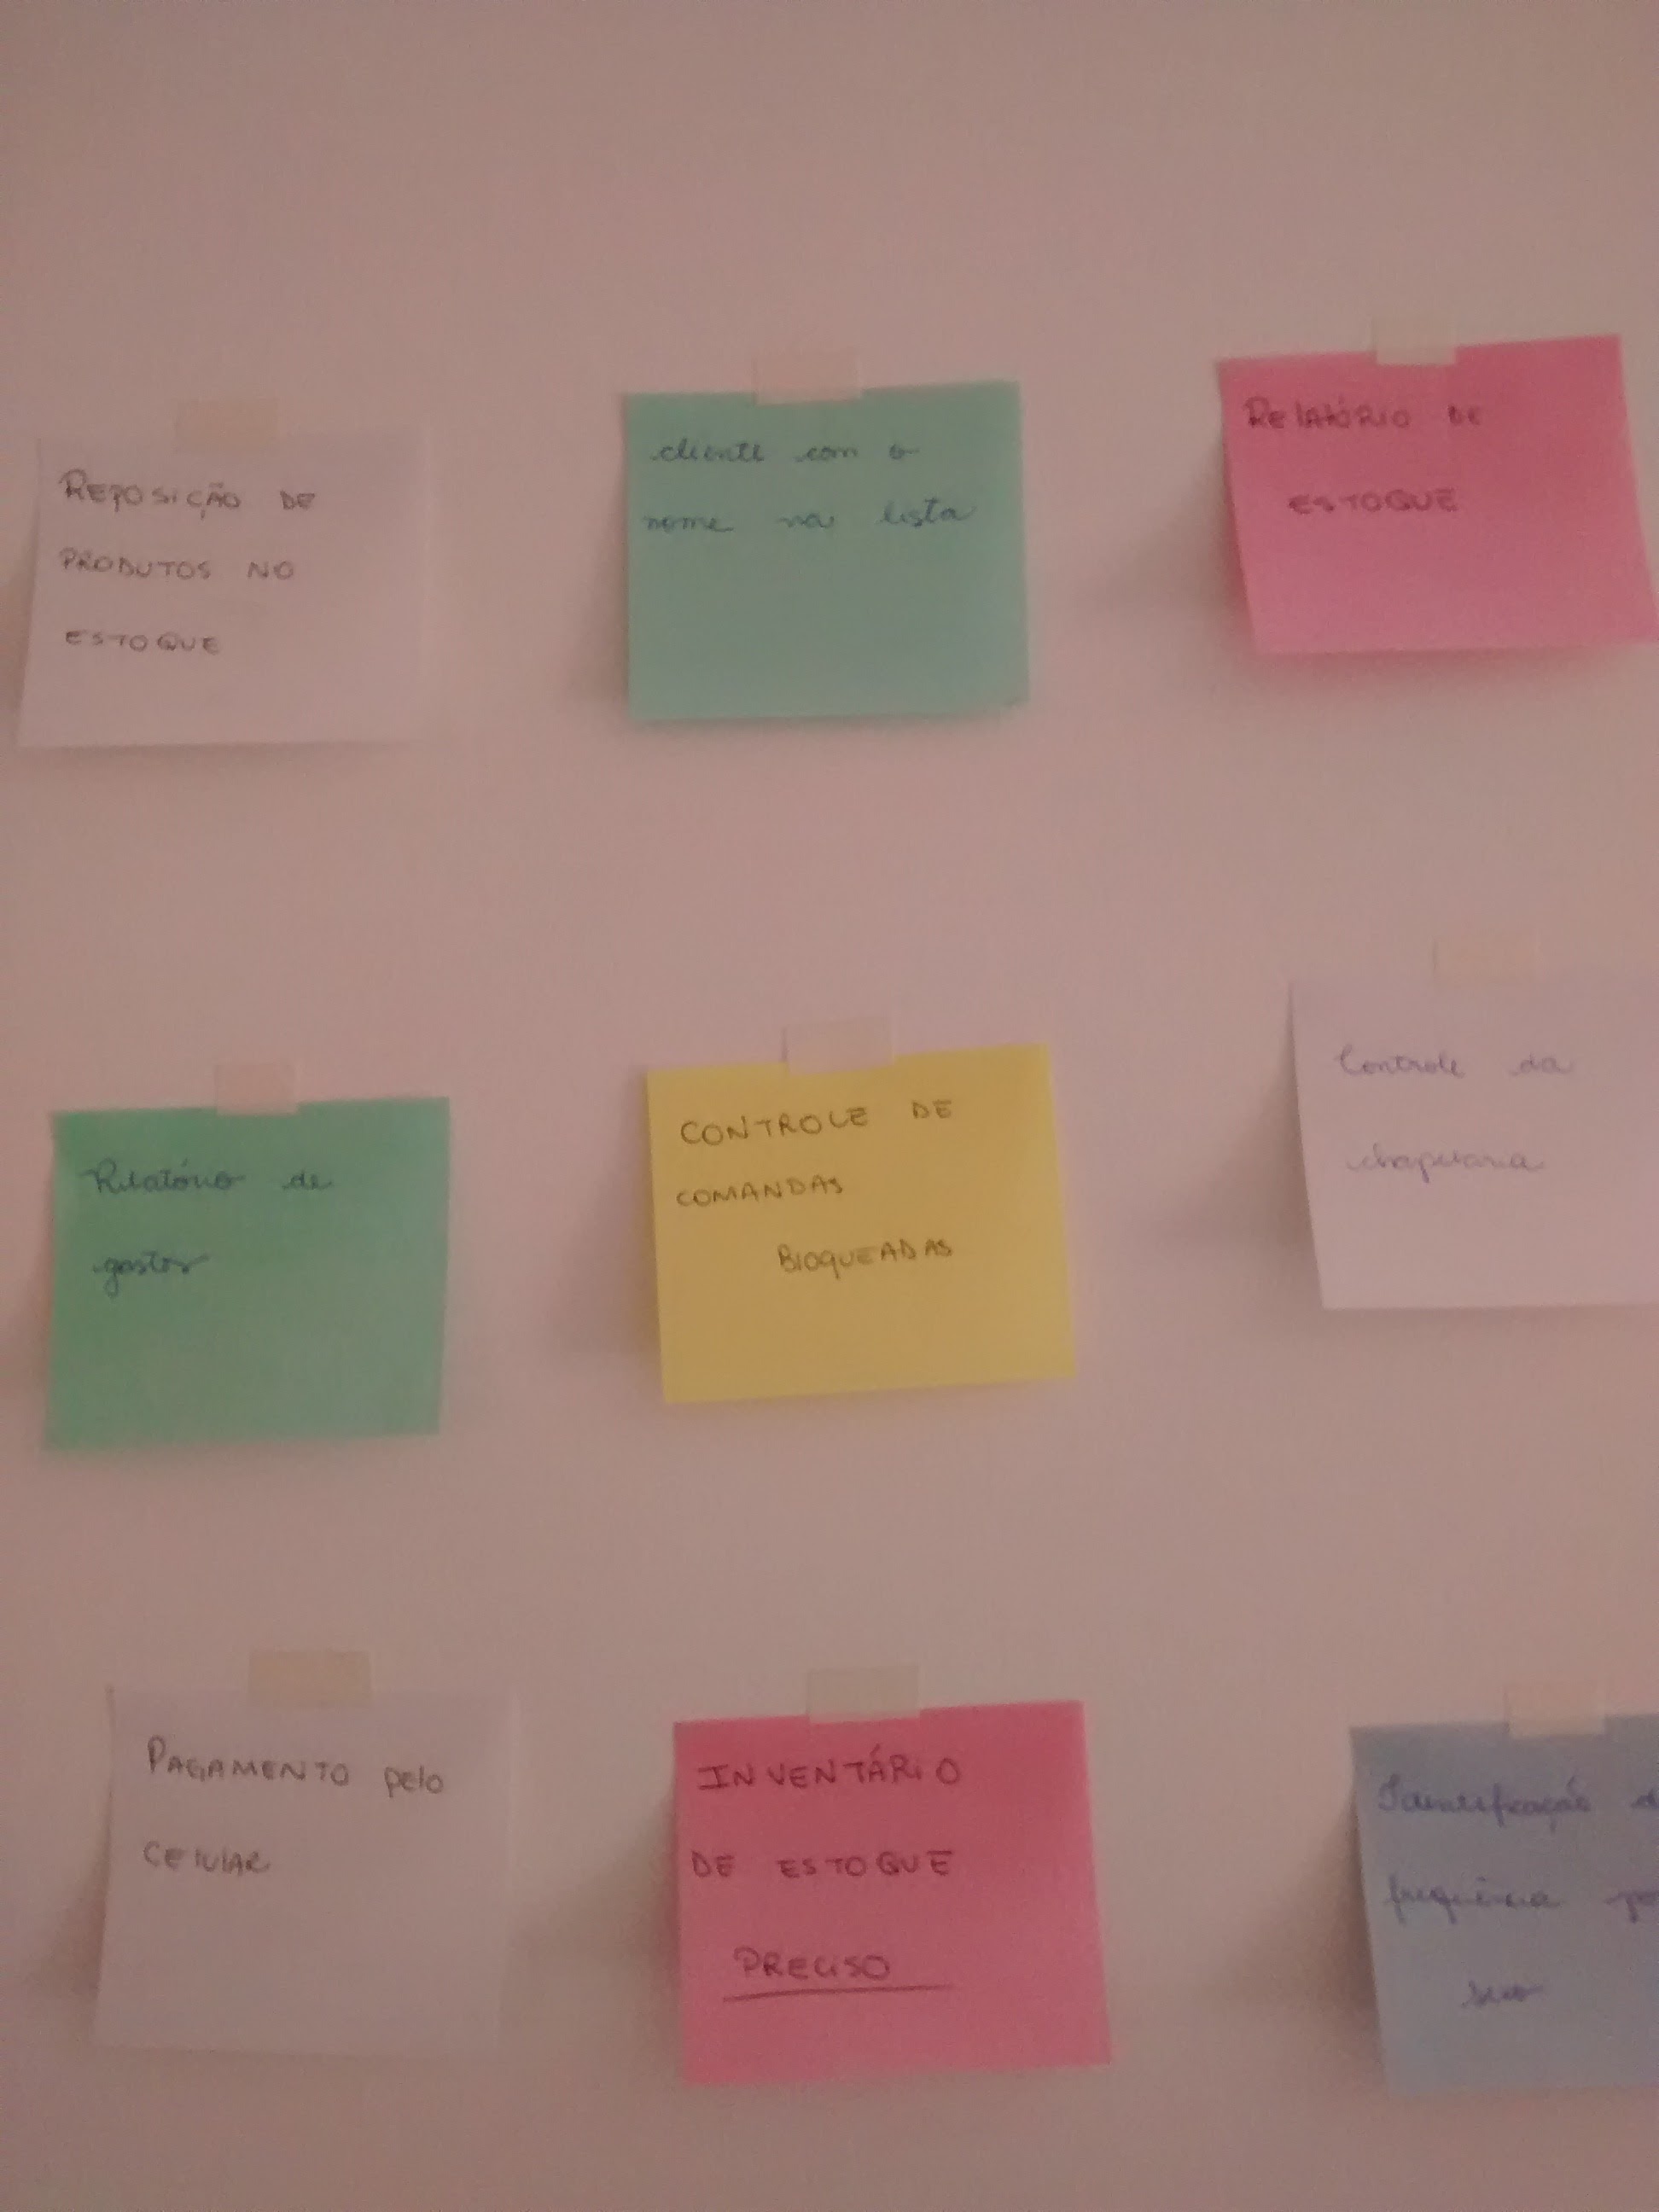 REPOSIÇÃO DE
PRODUTOS NO
ESTOQUE
cliente com o
nome na lista
RELATÓRIO DE
ESTOQUE
Relatório de
gastos
CONTROLE DE
COMANDAS
BLOQUEADAS
Controle da
chapelaria
PAGAMENTO pelo
CELULAR
INVENTÁRIO
DE ESTOQUE
PRECISO
Identificação
frequência
sexo